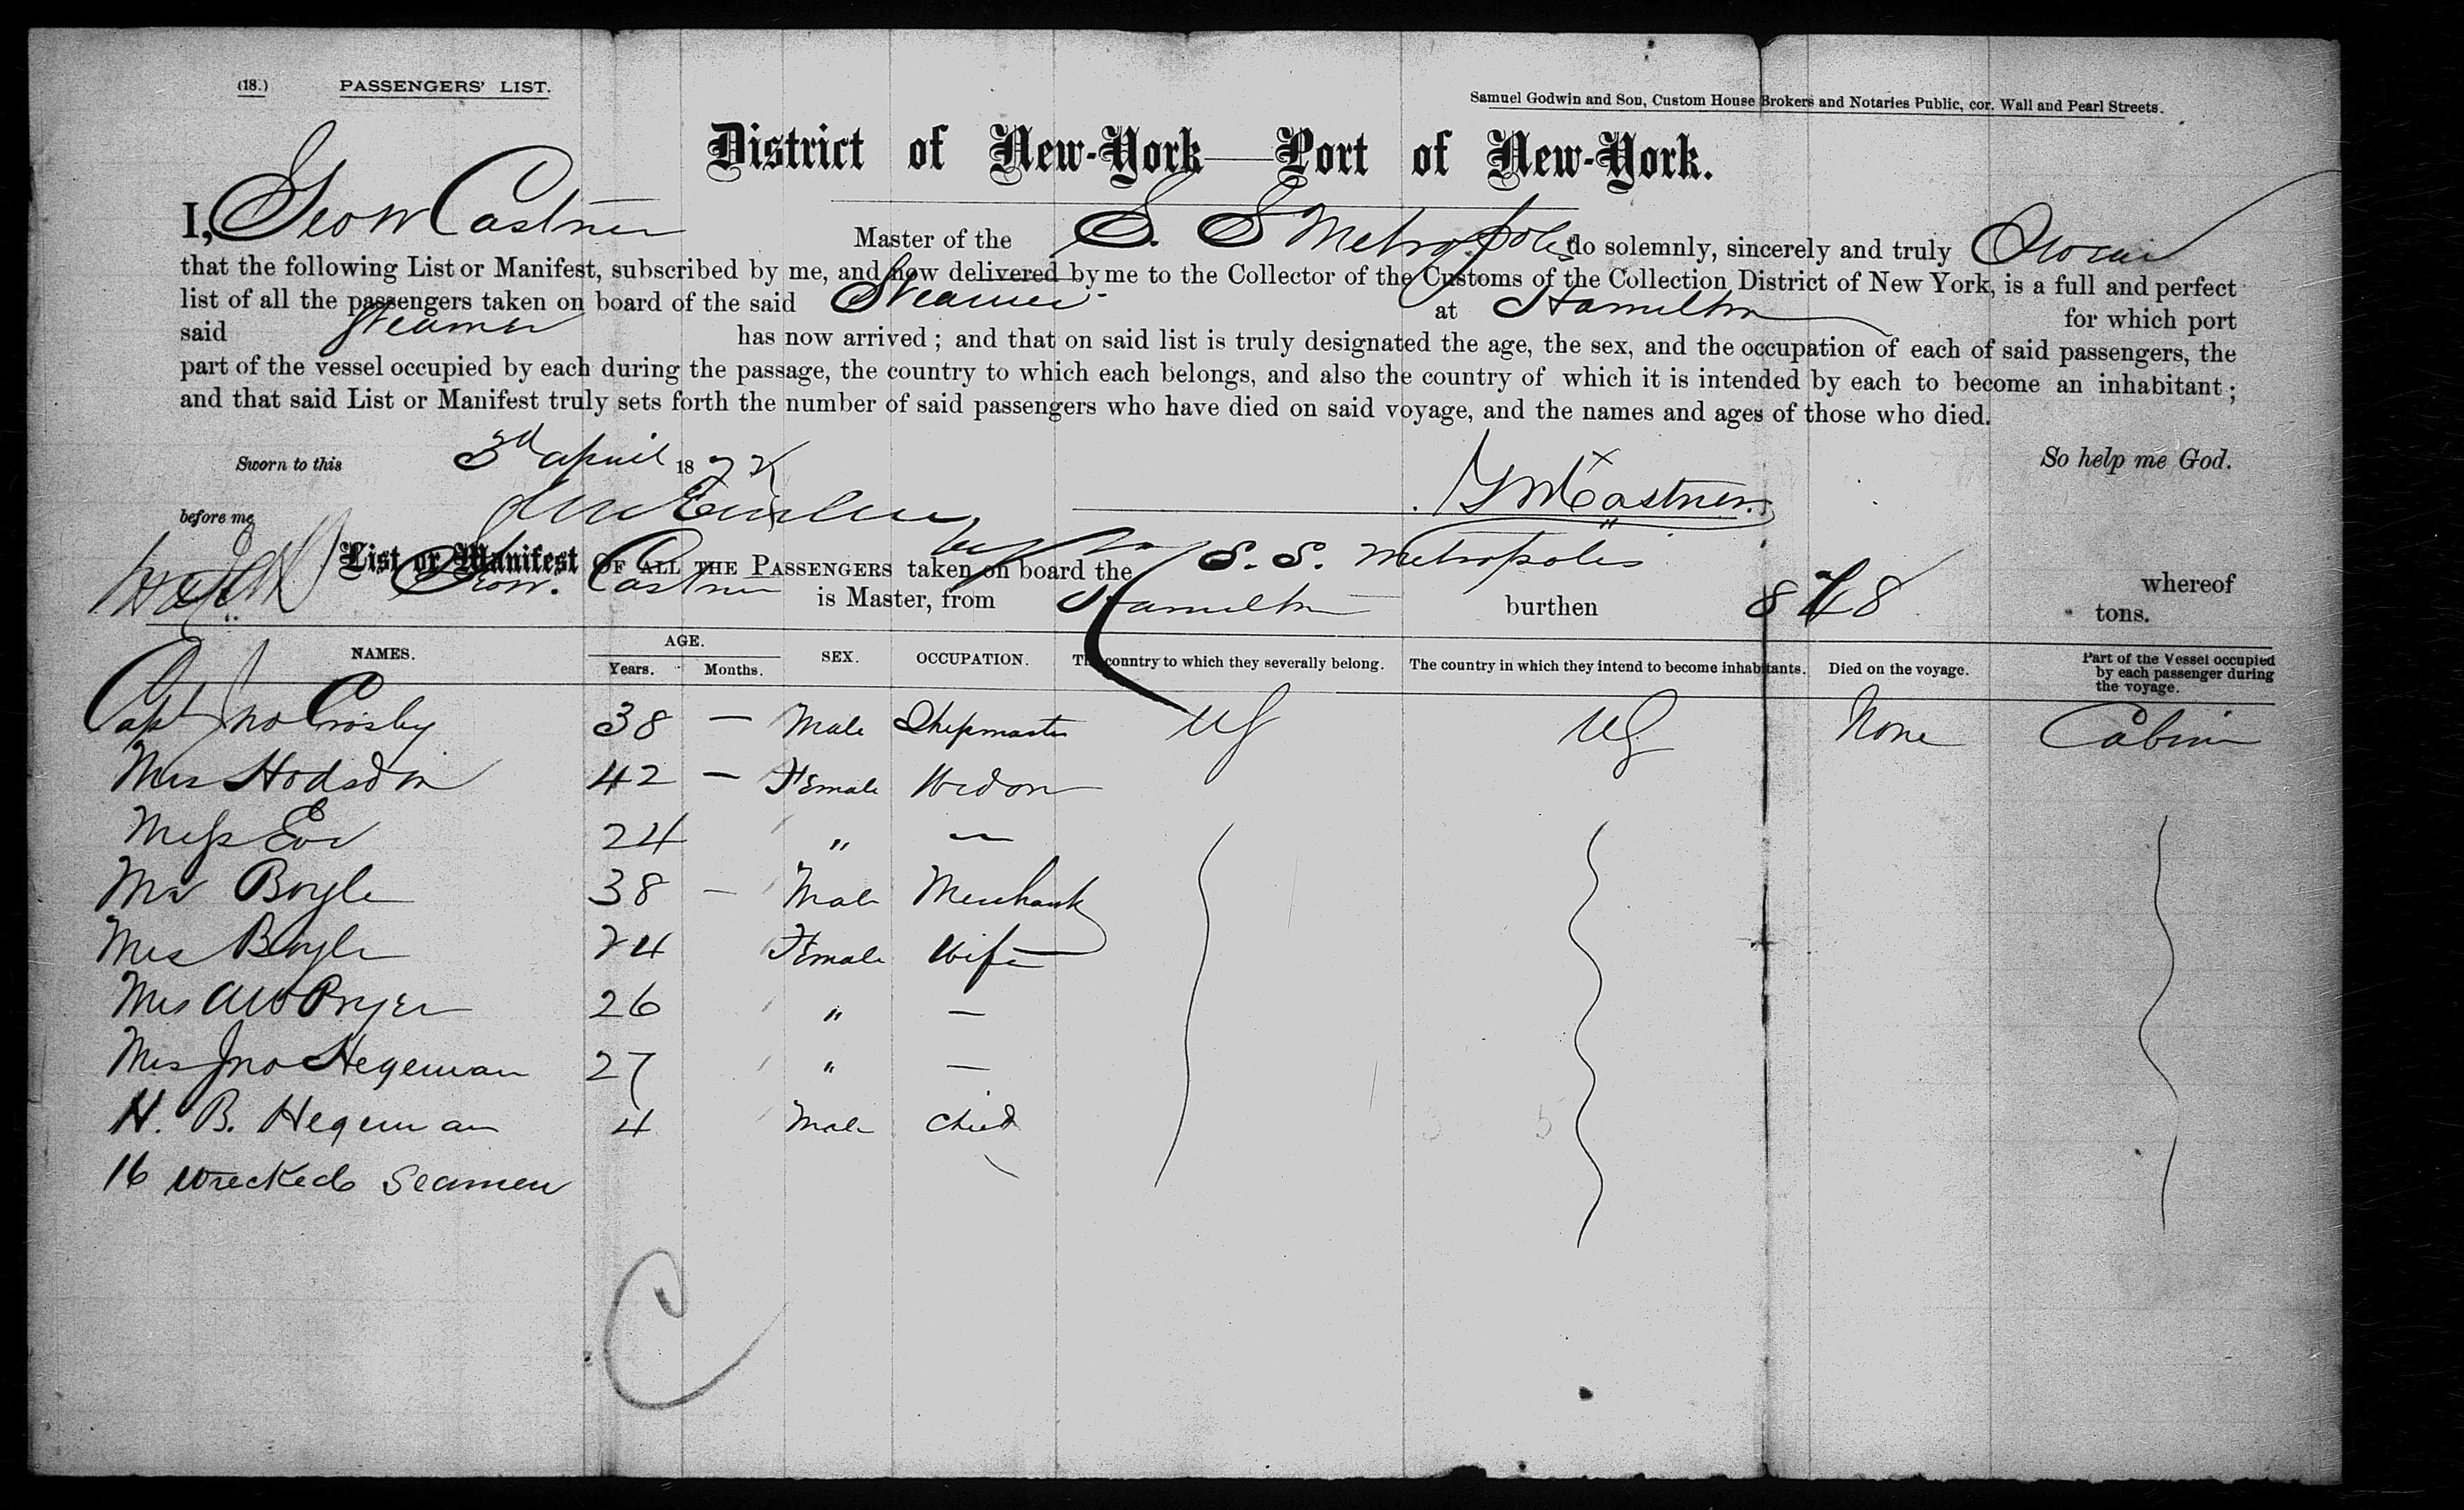 (18.) PASSENGERS' LIST.
Samuel Godwin and Son, Custom House Brokers and Notaries Public, cor. Wall and Pearl Streets.
District of New-York—Port of New-York.
I, Geo W Castner Master of the S. S Metropolis do solemnly, sincerely and truly Swear
that the following List or Manifest, subscribed by me, and now delivered by me to the Collector of the Customs of the Collection District of New York, is a full and perfect
list of all the passengers taken on board of the said Steamer at Hamilton for which port
said Steamer has now arrived; and that on said list is truly designated the age, the sex, and the occupation of each of said passengers, the
part of the vessel occupied by each during the passage, the country to which each belongs, and also the country of which it is intended by each to become an inhabitant;
and that said List or Manifest truly sets forth the number of said passengers who have died on said voyage, and the names and ages of those who died.
Sworn to this 3d April 1872 So help me God.
before me G W Castner
List or Manifest OF ALL THE PASSENGERS taken on board the S. S. Metropolis whereof
Geo W. Castner is Master, from Hamilton burthen 848 tons.
NAMES. AGE. Years. Months. SEX. OCCUPATION. The country to which they severally belong. The country in which they intend to become inhabitants. Died on the voyage. Part of the Vessel occupied by each passenger during the voyage.
Capt Jno Crosby 38 — Male Shipmaster US US None Cabin
Mrs Hodsdon 42 — Female Widow
Miss 24 " —
Mr Boyle 38 — Male Merchant
Mrs Boyle 24 Female Wife
Mrs AW Pryer 26 " —
Mrs Jno Hegeman 27 " —
H. B. Hegeman 4 Male Child
16 wrecked Seamen
C